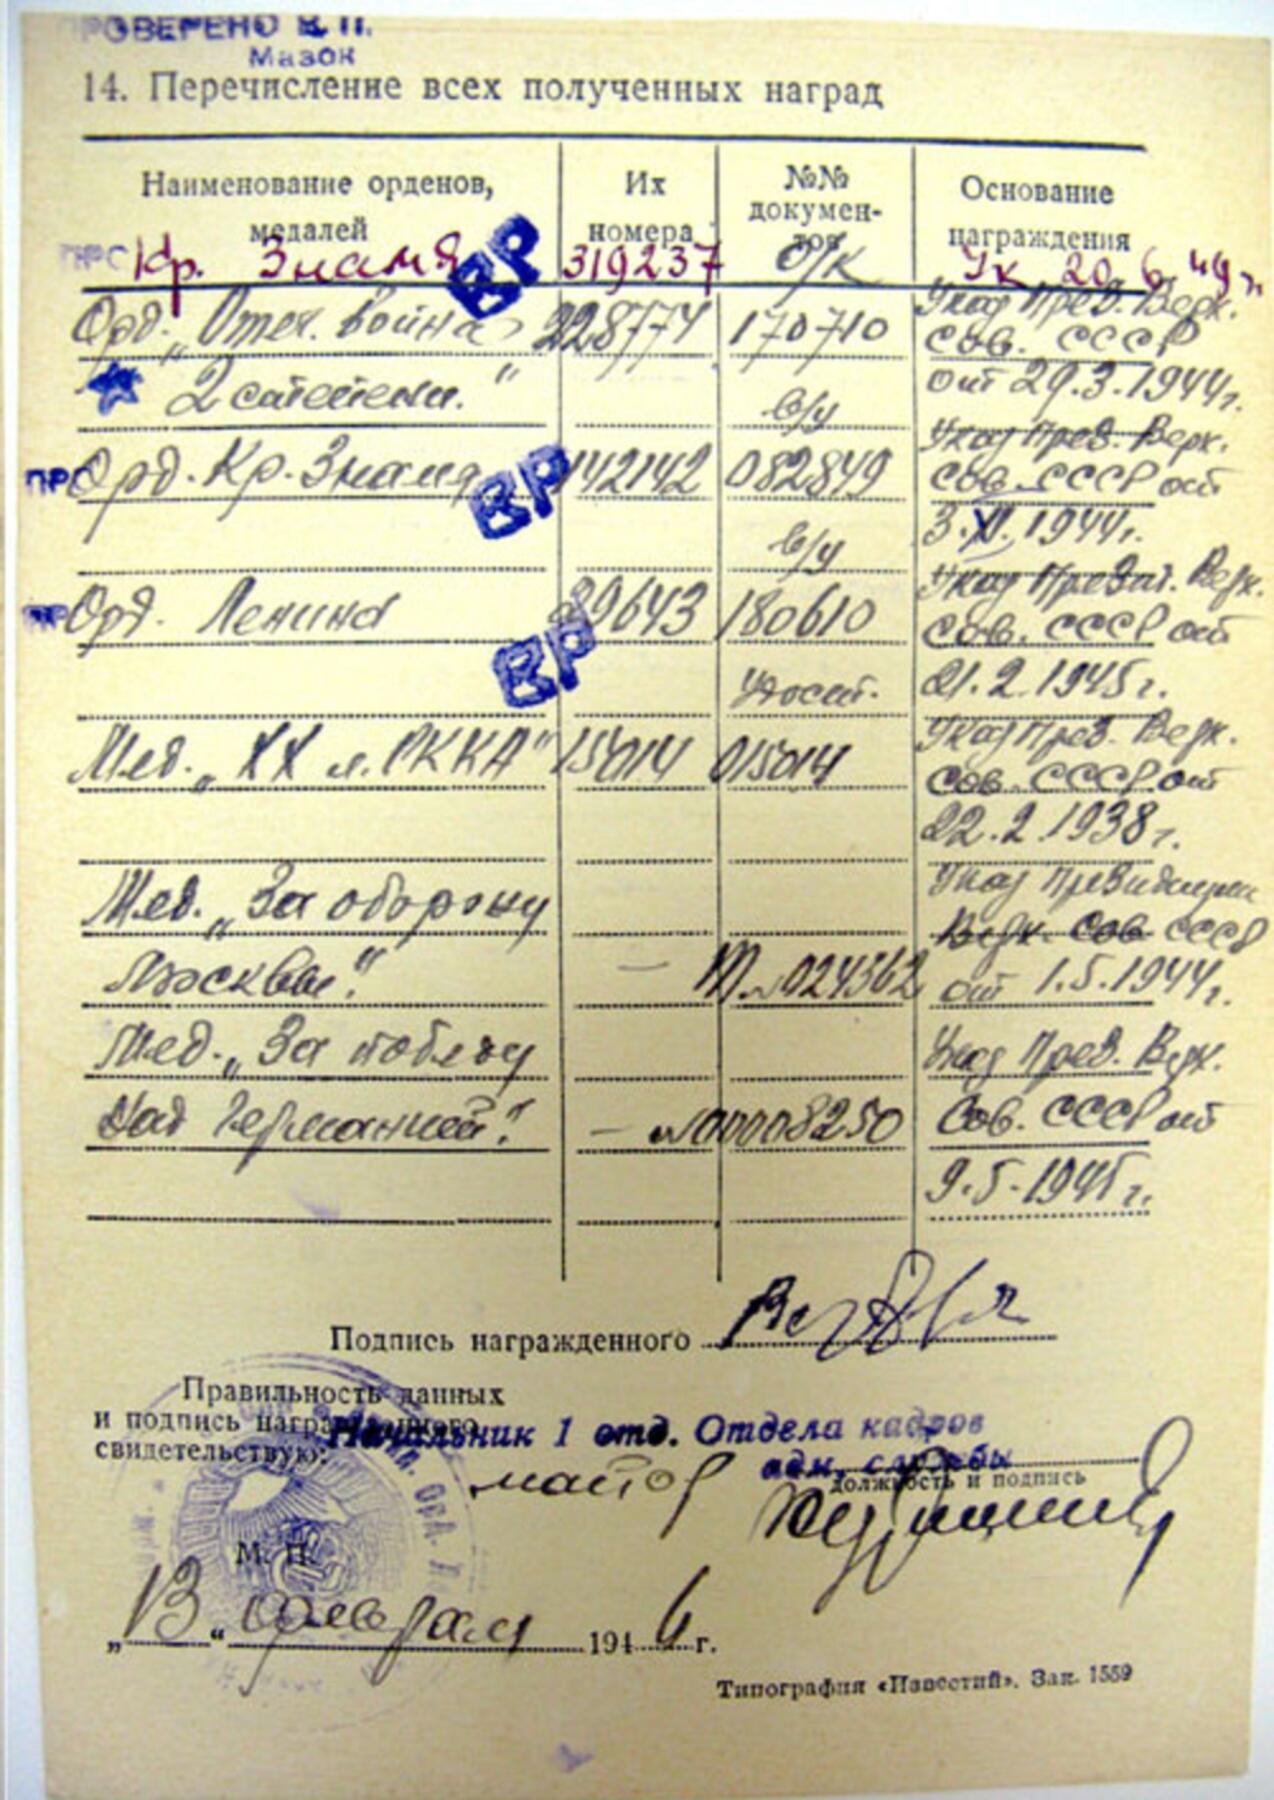 ПРОВЕРЕНО В. П.
Мазок
14. Перечисление всех полученных наград
Наименование орденов, медалей
Их номера
№№ документов
Основание награждения
Кр. Знамя ВР 319237 о/к Ук 20.6.49 г.
Орд. „Отеч. война 228774 170710 Указ През. Верх. Сов. СССР
2 степени." в/у от 29.3.1944г.
ПРС Орд. Кр. Знамя ВР 142142 082849 Указ През. Верх. Сов. СССР от
в/у 3.XI.1944г.
Орд. Ленина ВР 89643 180610 Указ Презид. Верх. Сов. СССР от
Удост. 21.2.1945г.
Мед. „XX л. РККА" 15014 015014 Указ През. Верх. Сов. СССР от
22.2.1938г.
Мед. „За оборону Указ Президиума Верх. Сов СССР
Москвы". — 024362 от 1.5.1944г.
Мед. „За победу Указ През. Верх.
над Германией". — №0008250 Сов. СССР от
9.5.1945г.
Подпись награжденного
Правильность данных
и подпись награжденного
свидетельствую:
Начальник 1 отд. Отдела кадров
адм. службы
майор
должность и подпись
М. П.
„13" февраля 1946 г.
Типография «Известий». Зак. 1559